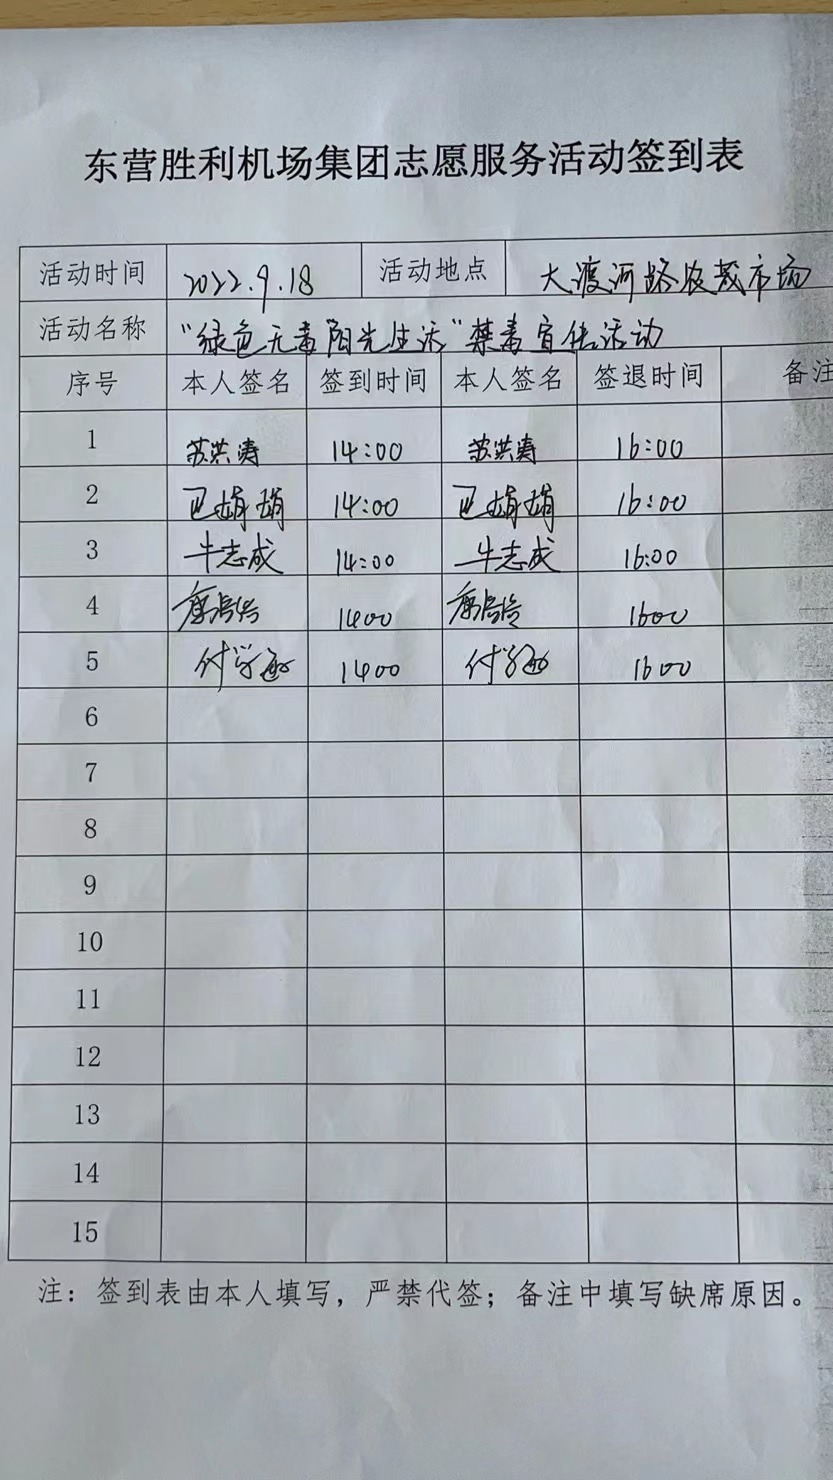 东营胜利机场集团志愿服务活动签到表
活动时间 2022.9.18 活动地点 大渡河路农贸市场
活动名称 "绿色无毒 阳光生活"禁毒宣传活动
序号 本人签名 签到时间 本人签名 签退时间 备注
1 苏洪涛 14:00 苏洪涛 16:00
2 14:00 16:00
3 牛志成 14:00 牛志成 16:00
4 1400 1600
5 1400 1600
6
7
8
9
10
11
12
13
14
15
注：签到表由本人填写，严禁代签；备注中填写缺席原因。